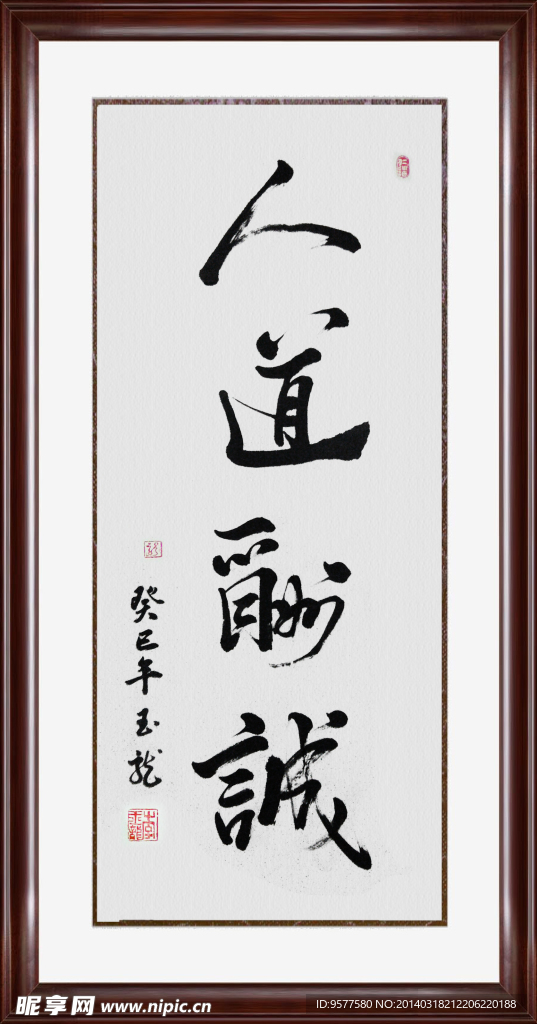 人道酬誠
癸巳年玉龍
昵享网 www.nipic.cn
ID:9577580 NO:20140318212206220188